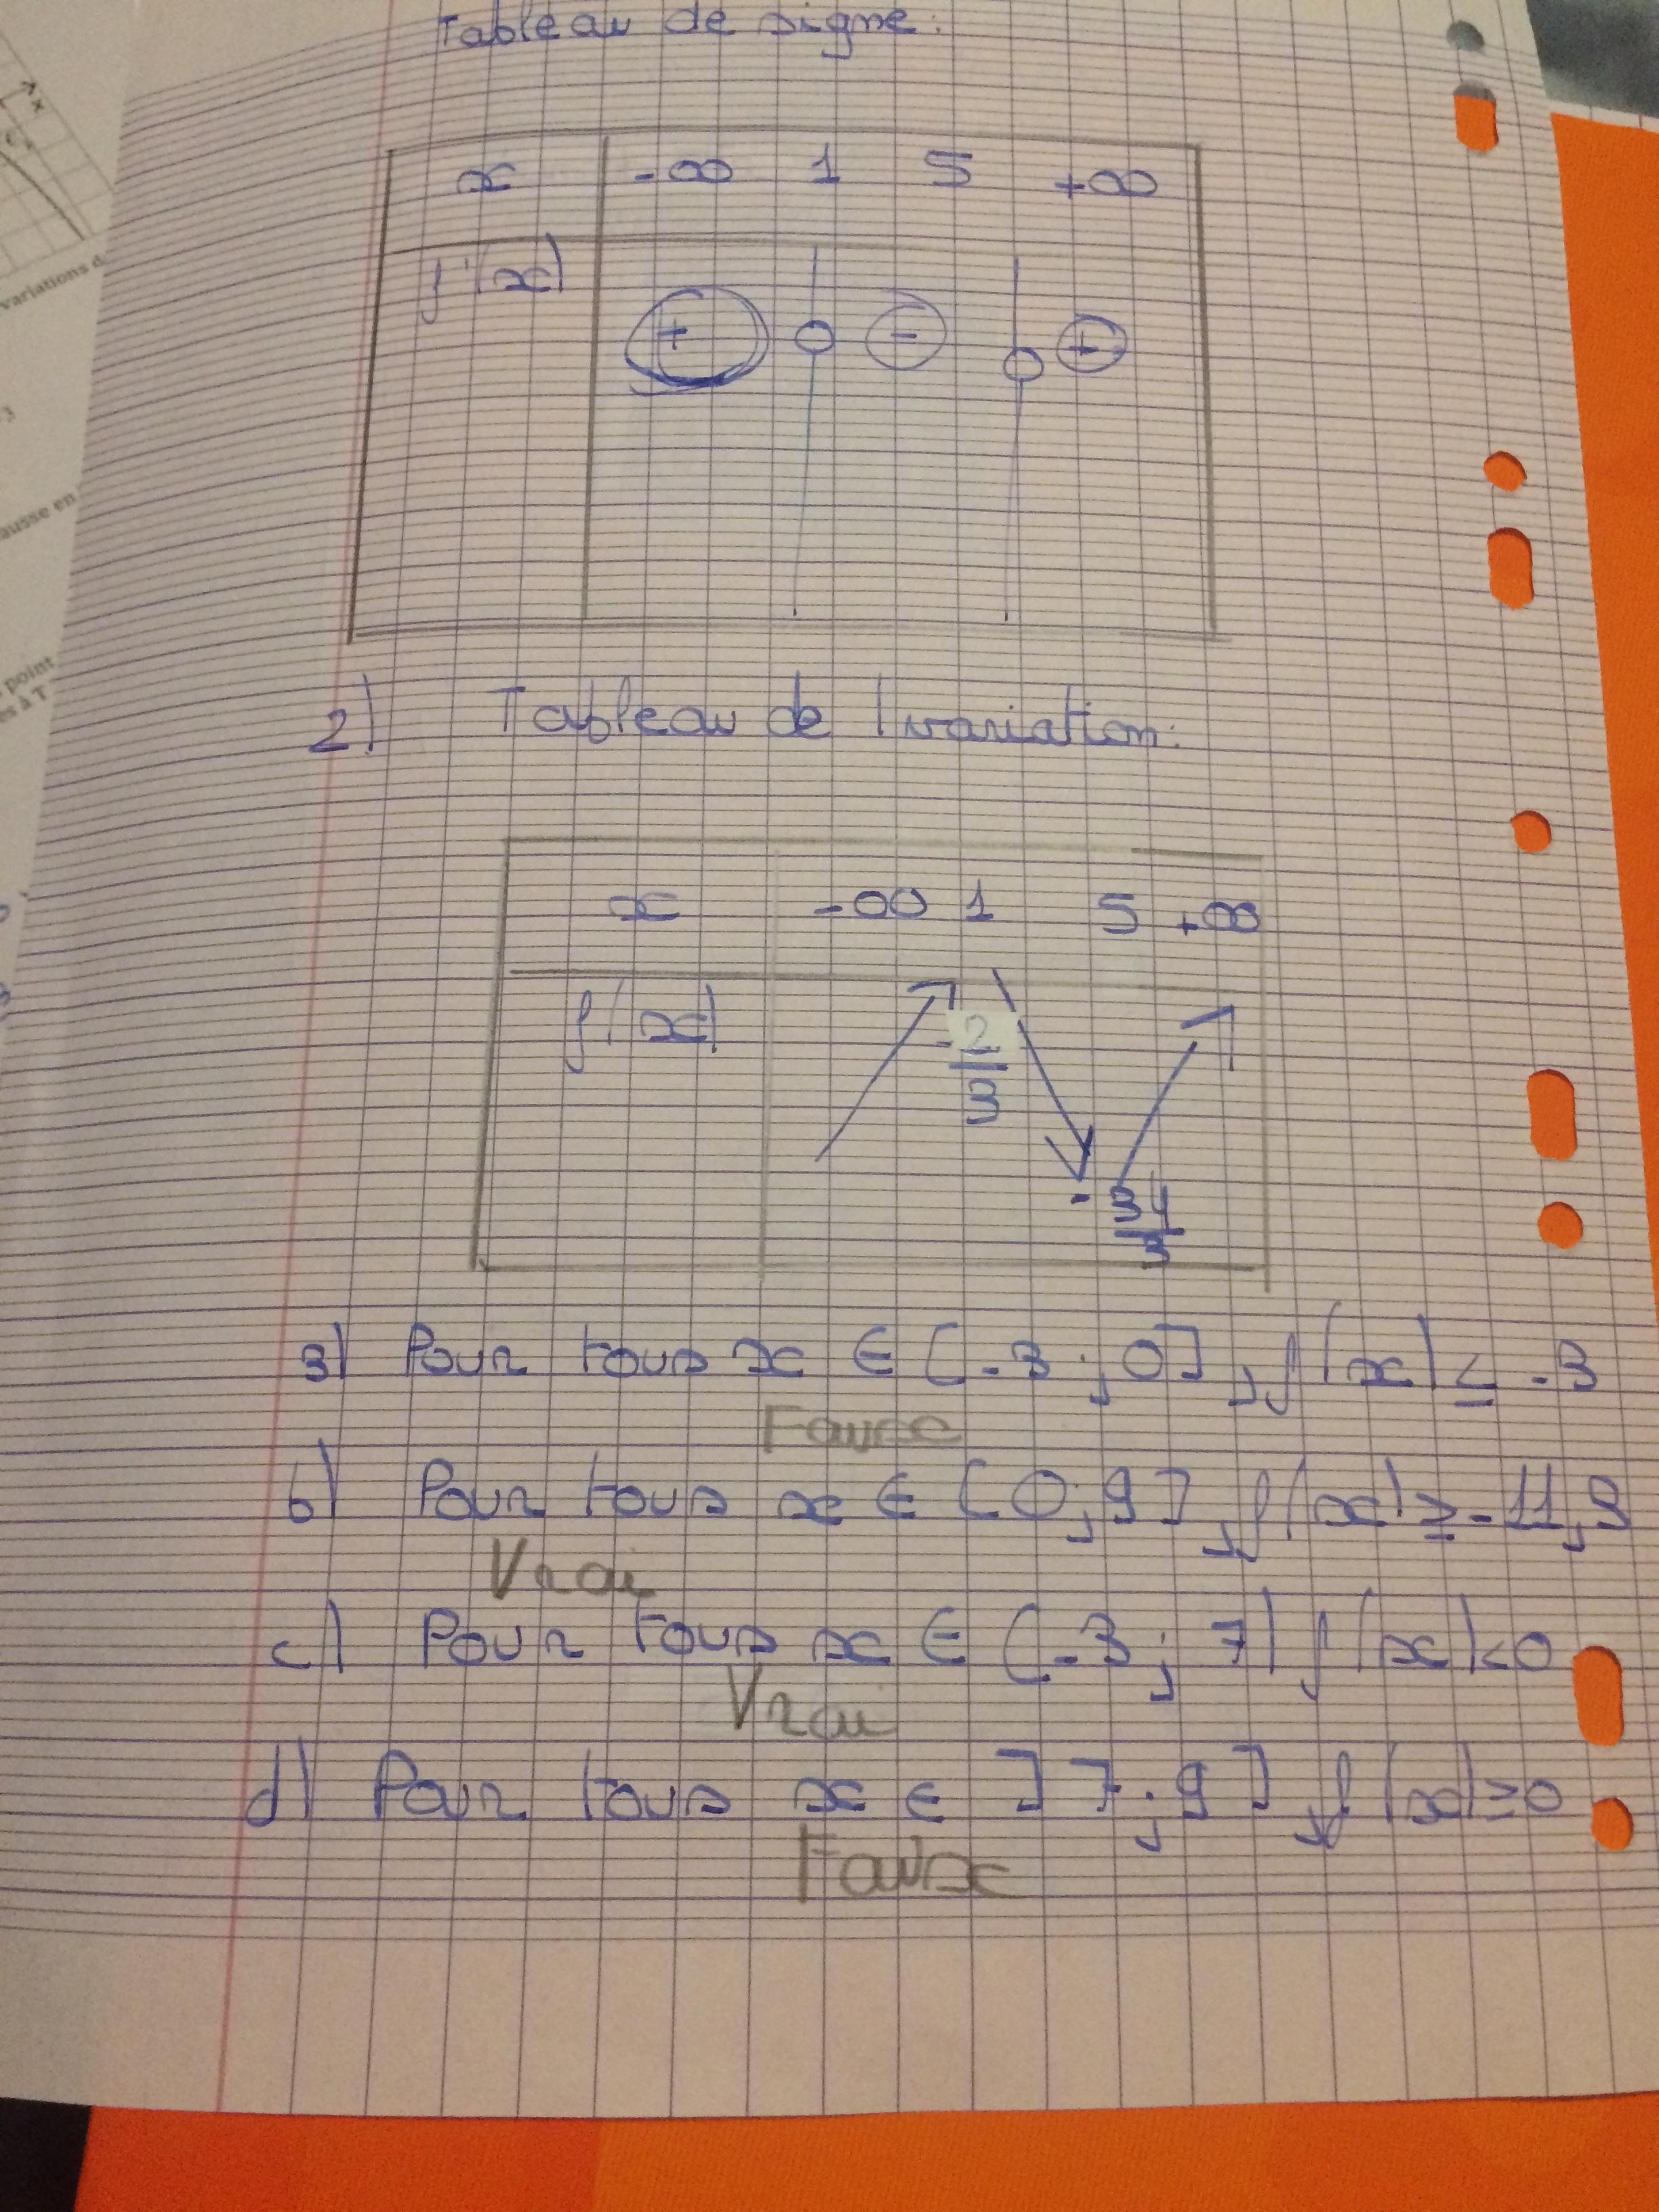 Tableau de signe:
x -∞ 1 5 +∞
f'(x) + 0 - 0 +
2) Tableau de variation:
x -∞ 1 5 +∞
f(x) -2/3 -34/3
3) Pour tous x ∈ [-3;0], f(x) ≤ -3
Fausse
b) Pour tous x ∈ [0;9], f(x) ≥ -11,9
Vrai
c) Pour tous x ∈ [-3;7] f(x) < 0
Vrai
d) Pour tous x ∈ ]7;9], f(x) ≥ 0
Fausse
x
variations d
3
ausse en
point
es à T